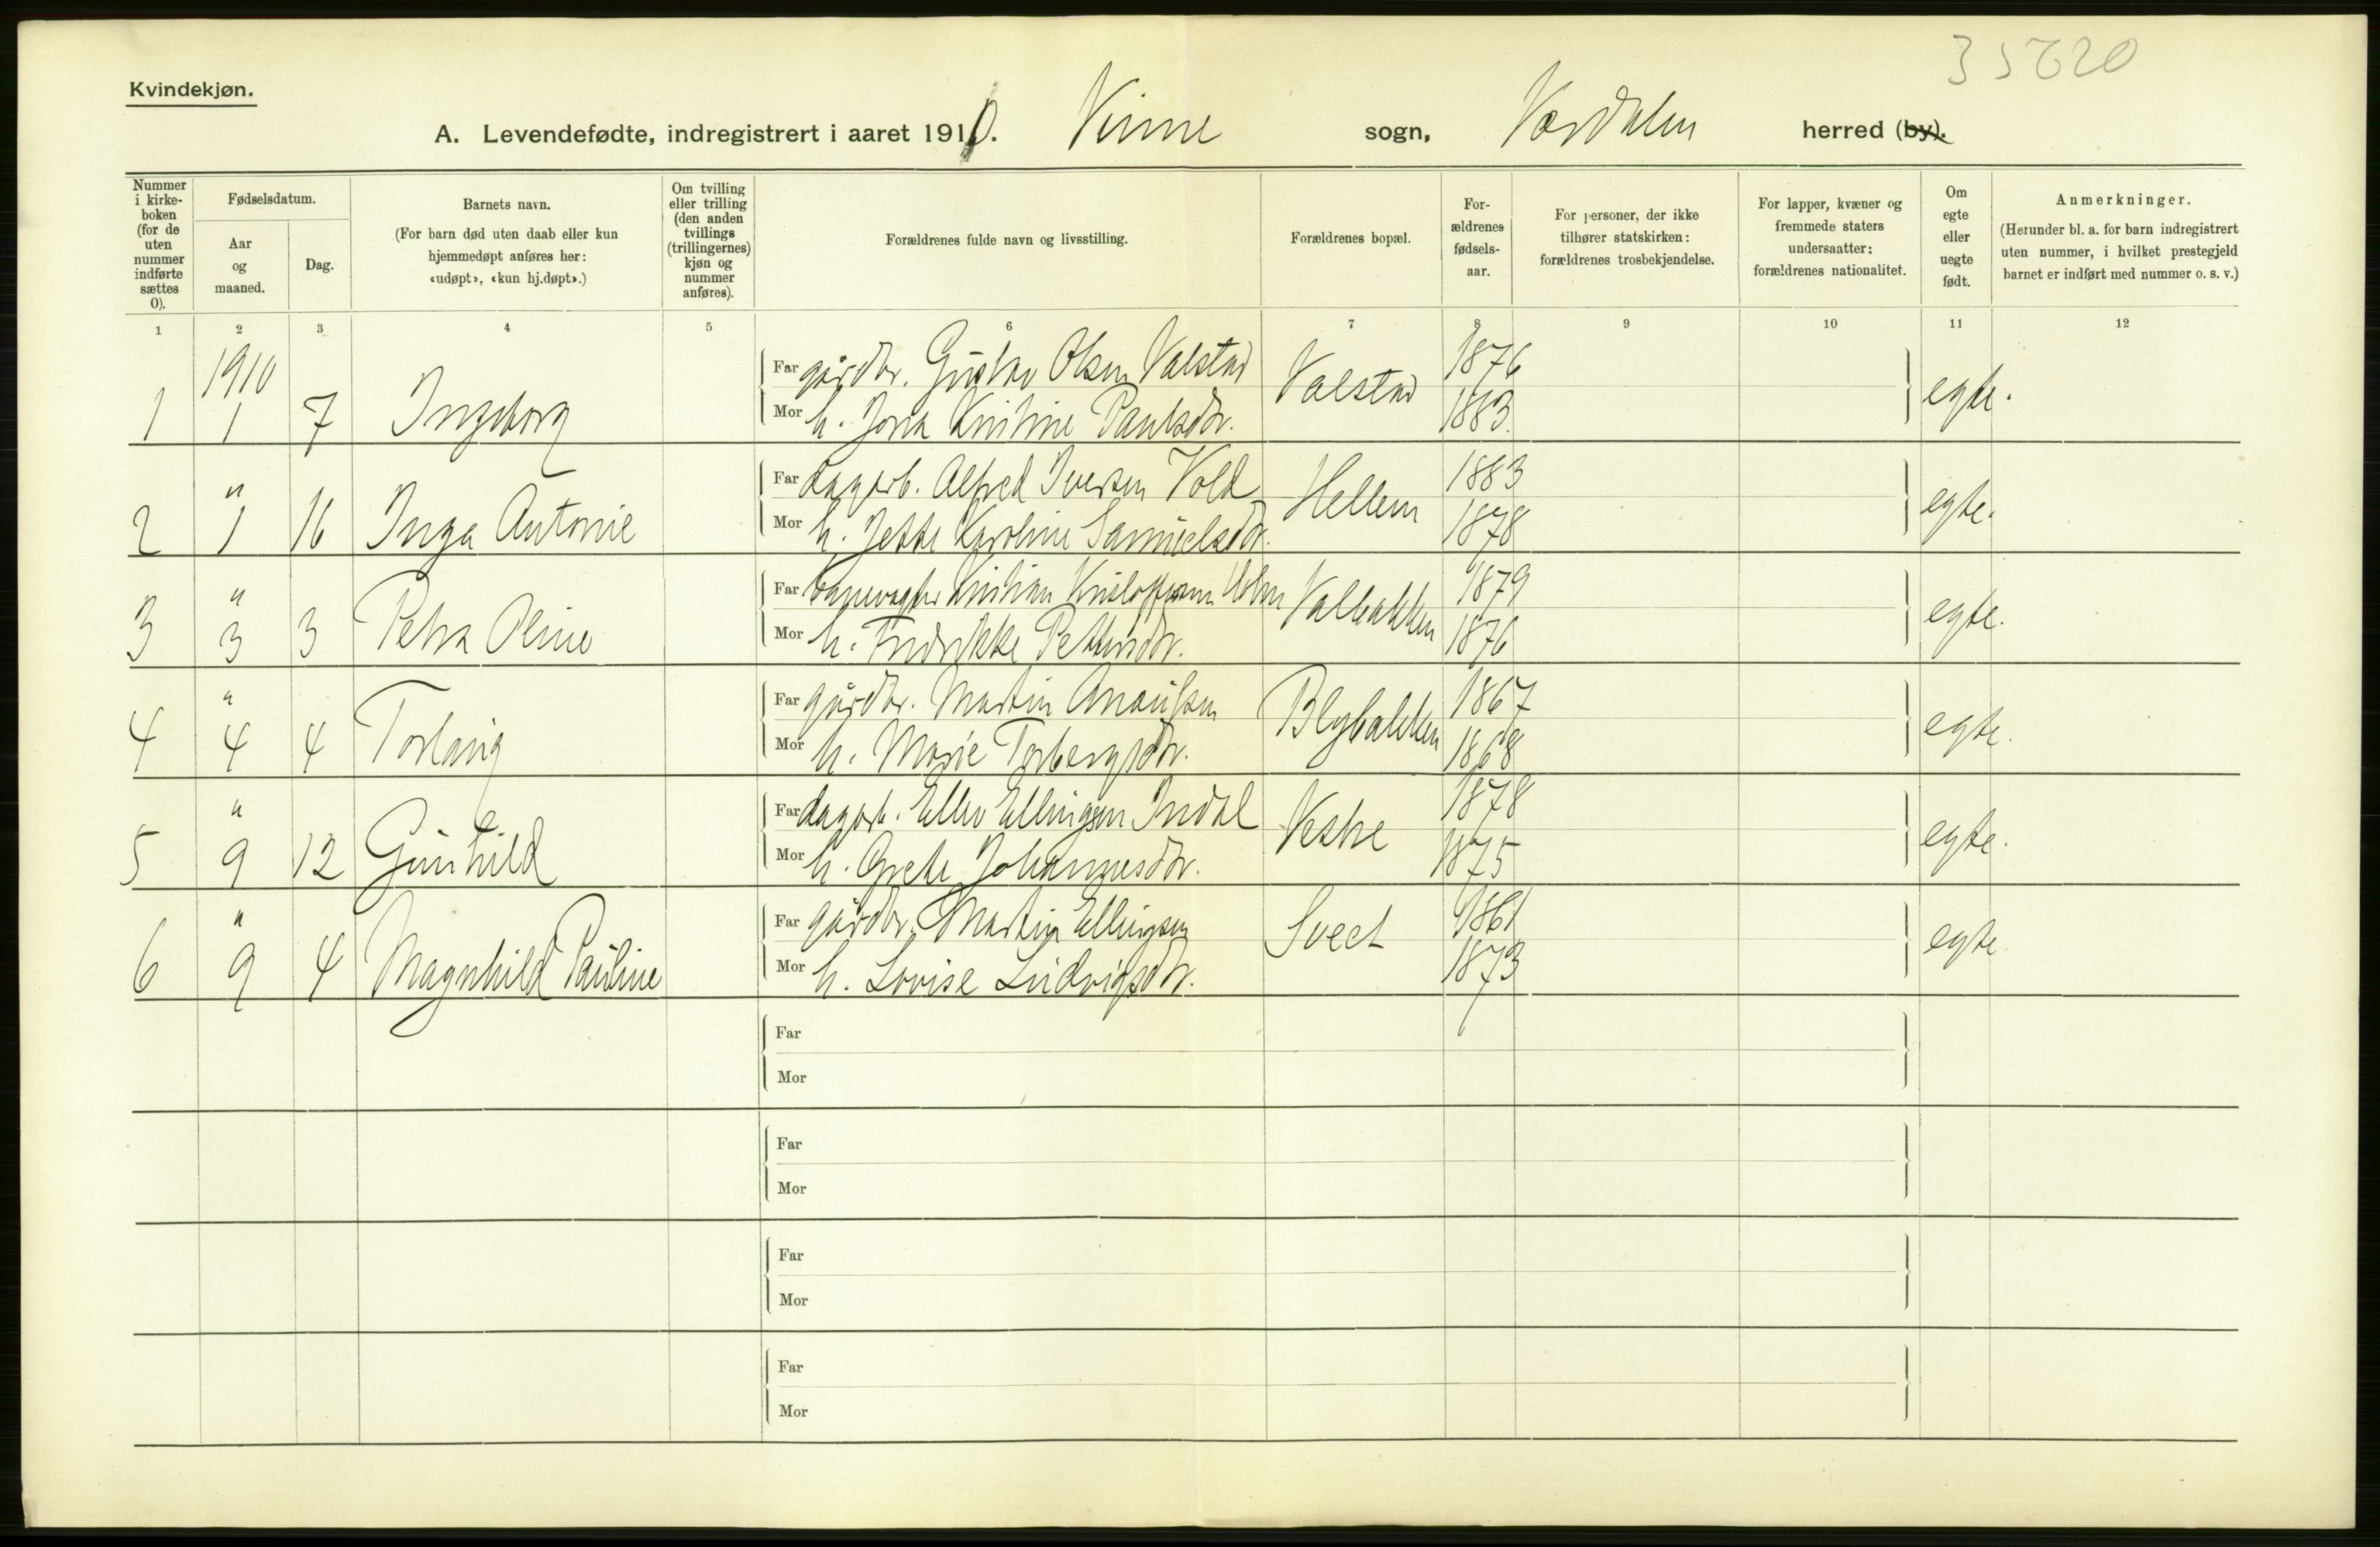 35620
Kvindekjøn.
A. Levendefødte, indregistrert i aaret 1910. Vinne sogn, Værdalen herred (by).
Nummer i kirke-boken (for de uten nummer indførte sættes 0).
Fødselsdatum.
Aar og maaned.
Dag.
Barnets navn.
(For barn død uten daab eller kun
hjemmedøpt anføres her:
«udøpt», «kun hj.døpt».)
Om tvilling
eller trilling
(den anden
tvillings
(trillingernes)
kjøn og
nummer
anføres).
Forældrenes fulde navn og livsstilling.
Forældrenes bopæl.
For-
ældrenes
fødsels-
aar.
For personer, der ikke
tilhører statskirken:
forældrenes trosbekjendelse.
For lapper, kvæner og
fremmede staters
undersaatter:
forældrenes nationalitet.
Om
egte
eller
uegte
født.
Anmerkninger.
(Herunder bl. a. for barn indregistrert
uten nummer, i hvilket prestegjeld
barnet er indført med nummer o. s. v.)
1 2 3 4 5 6 7 8 9 10 11 12
1 1910 1 7 Ingeborg
Far gårdbr. Gustav Olsen Valstad Valstad 1876 egte.
Mor h. Kristine Paulsdtr. 1883.
2 " 1 16 Inga Antonie
Far dagarb. Alfred Iversen Vold Hellem 1883 egte.
Mor h. Jette Karoline Samuelsdtr. 1878
3 " 3 3 Petra Oline
Far banevogter Kristian Kristoffersen Holm Valbakken 1879 egte.
Mor h. Fredrikke Pettersdtr. 1876
4 " 4 4 Torlaug
Far gårdbr. Martin Blybakken 1867 egte.
Mor h. Marie Torbergsdtr. 1868
5 " 9 12 Gunhild
Far dagarb. Ellev Ellingsen Indal Vestre 1878 egte.
Mor h. Grete Johannesdtr. 1875
6 " 9 4 Magnhild Pauline
Far gårdbr. Martin Ellingsen Sveet 1861 egte
Mor h. Lovise Ludvigsdtr. 1873
Far
Mor
Far
Mor
Far
Mor
Far
Mor